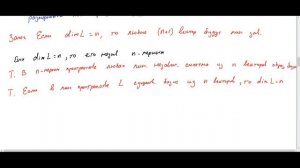 Если dim L = n, то любые (n+1) вектор будут лин зав.
Если dim L = n, то его назыв n-мерным
Т. В n-мерном пространстве любая лин независ. система из n векторов образ. базис
Т. Если в лин пространстве L существ базис из n векторов, то dim L = n